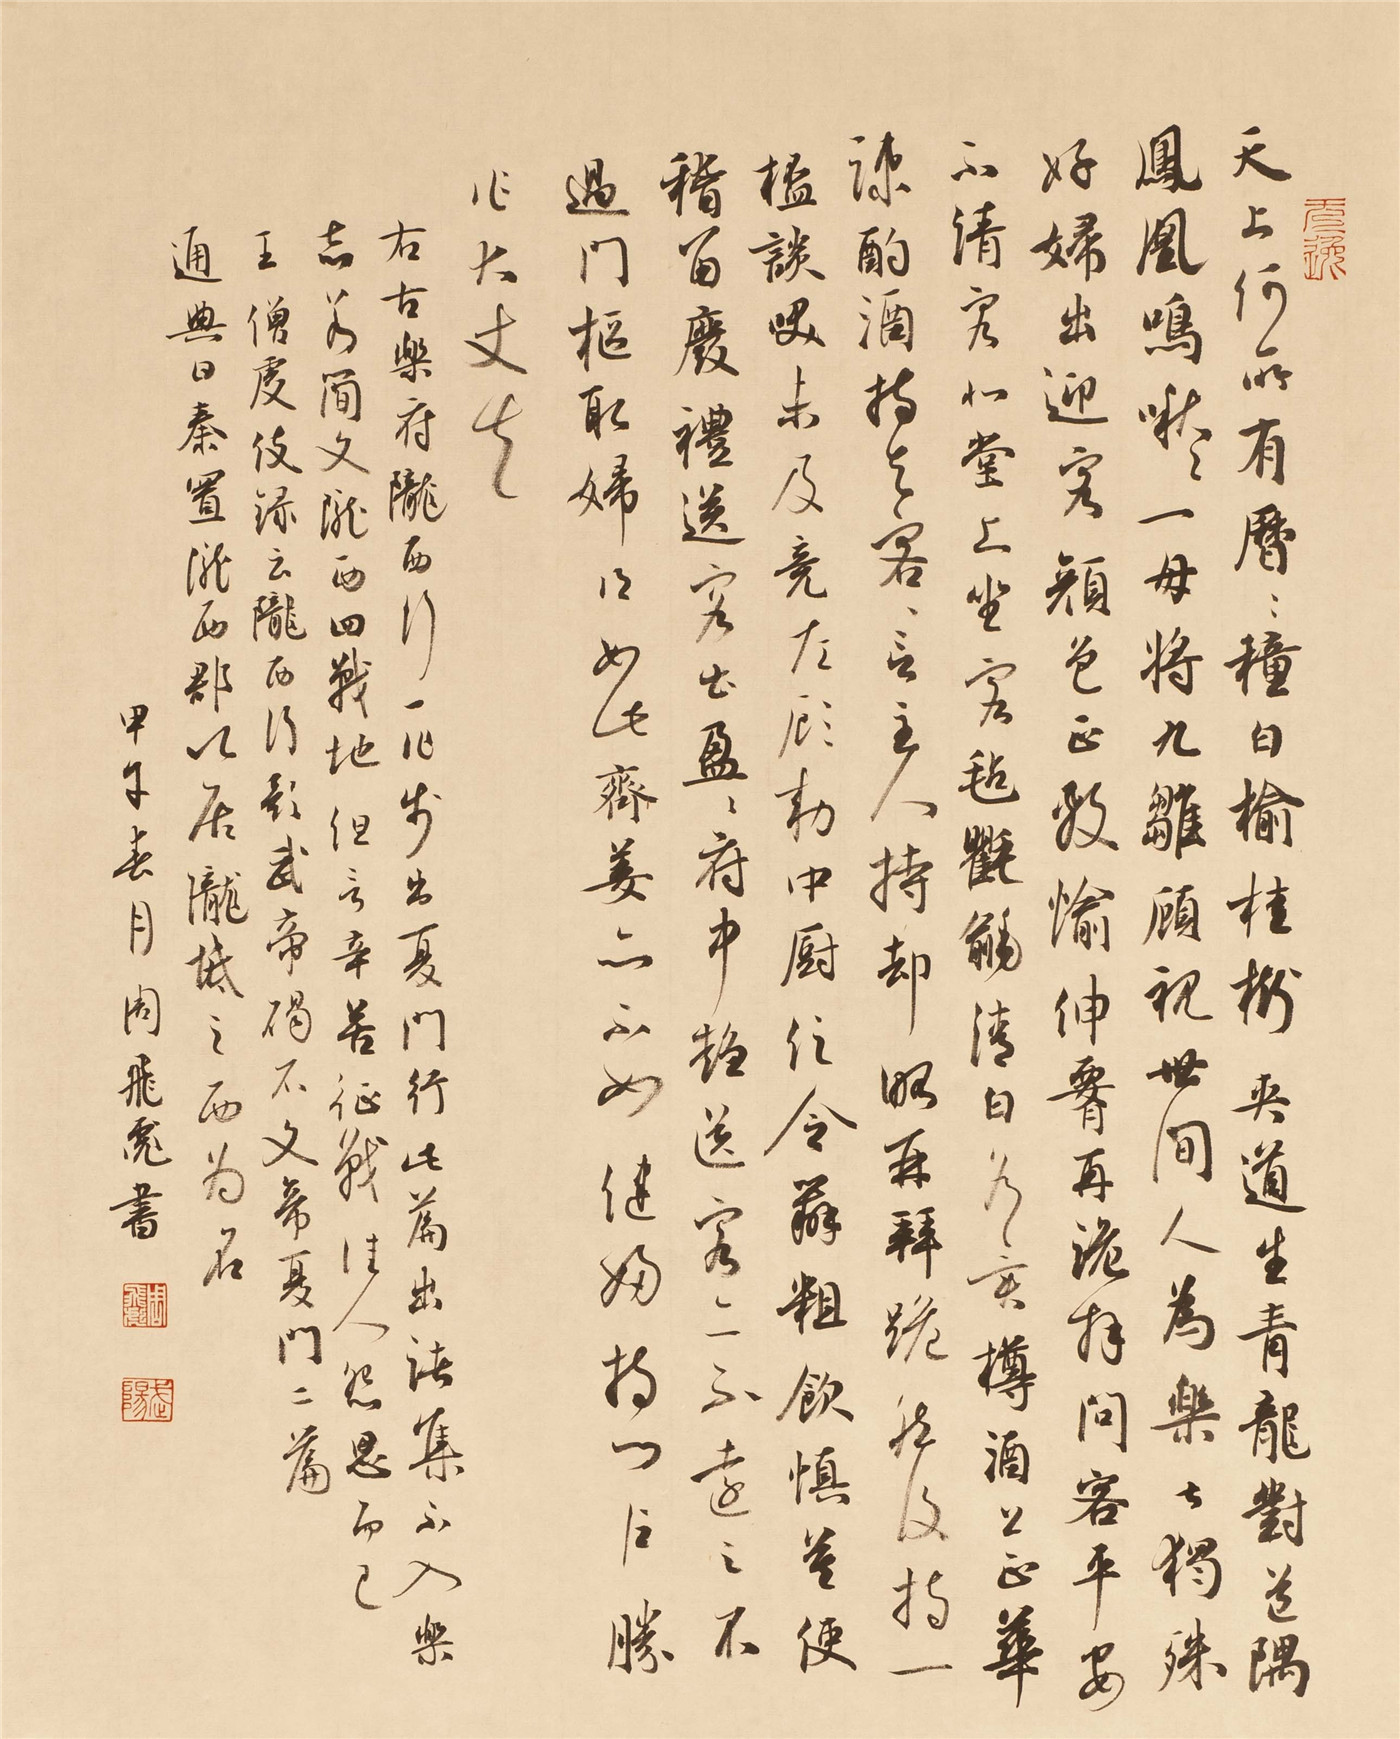 天上何所有曆〻種白榆桂樹夾道生青龍對道隅
鳳凰鳴啾〻一母將九雛顧視世間人為樂甚獨殊
好婦出迎客顏色正敷愉伸腰再跪拜問客平安
不請客北堂上坐客氈氍毹清白各異樽酒上正華
疎酌酒持與客〻言主人持却略再拜跪然後持一
杯談笑未及竟左顧勑中厨促令辦粗飲慎莫使
稽留廢禮送客出盈〻府中趨送客亦不遠足不
過門樞取婦得如此齊姜亦不如健婦持門戶勝
一大丈夫
右古樂府隴西行一作步出夏門行此篇出諸集不入樂
志若簡文隴西四戰地但言辛苦征戰佳人怨思而已
王僧虔伎錄云隴西行歌武帝碣石文帝夏門二篇
通典曰秦置隴西郡以居隴坻之西為名
甲午春月周飛虎書